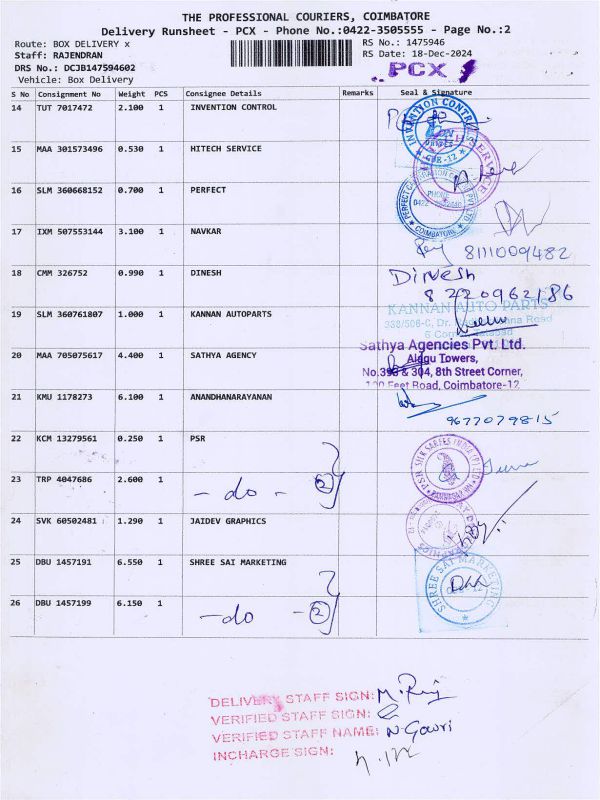 THE PROFESSIONAL COURIERS, COIMBATORE
Delivery Runsheet - PCX - Phone No.:0422-3505555 - Page No.:2
Route: BOX DELIVERY x
RS No.: 1475946
Staff: RAJENDRAN
RS Date: 18-Dec-2024
DRS No.: DCJB147594602
PCX
Vehicle: Box Delivery
S No Consignment No Weight PCS Consignee Details Remarks Seal & Signature
14 TUT 7017472 2.100 1 INVENTION CONTROL
INVENTION CONTR
CBE-12
15 MAA 301573496 0.530 1 HITECH SERVICE
SERVICE
16 SLM 360668152 0.700 1 PERFECT
PERFECT
PHONE
COIMBATORE
17 IXM 507553144 3.100 1 NAVKAR
8111009482
18 CMM 326752 0.990 1 DINESH
Dinesh
8220962186
19 SLM 360761807 1.000 1 KANNAN AUTOPARTS
KANNAN AUTO PARTS
338/506-C, Dr. Road
20 MAA 705075617 4.400 1 SATHYA AGENCY
Sathya Agencies Pvt. Ltd.
Alagu Towers,
No.393 & 304, 8th Street Corner,
100 Feet Road, Coimbatore-12
21 KMU 1178273 6.100 1 ANANDHANARAYANAN
9677079815
22 KCM 13279561 0.250 1 PSR
PSR SILK SAREES INDIA (P) LTD
RAMNAGAR
23 TRP 4047686 2.600 1 - do - 2
24 SVK 60502481 1.290 1 JAIDEV GRAPHICS
25 DBU 1457191 6.550 1 SHREE SAI MARKETING
SHREE SAI MARKETING
26 DBU 1457199 6.150 1 - do - 2
DELIVERY STAFF SIGN: M. Raj
VERIFIED STAFF SIGN:
VERIFIED STAFF NAME: N Gowri
INCHARGE SIGN: